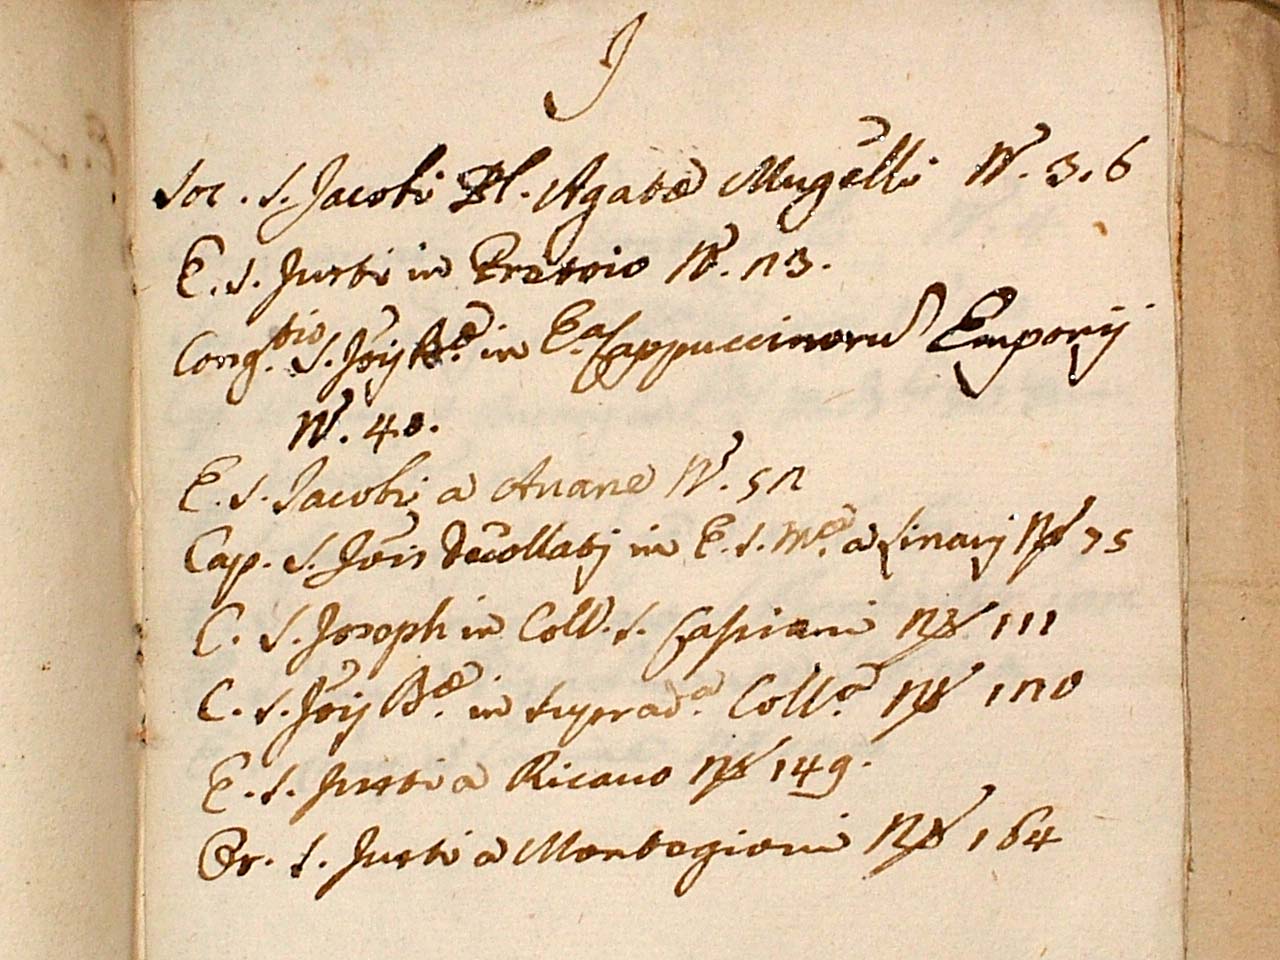 J
Soc. S. Jacobi Pl. Agatæ Mugelli N. 3. 6
E. S. Justi in Pretoio N. 23.
Cong.tio S. Jõis Bæ. in E.a Cappuccinorũ Emporij
N. 40.
E. S. Jacobi a N. 52
Cap. S. Jõis Decollatj in E. S. Mæ. a Linarj N. 75
C. S. Joseph in Coll. S. Casiani N. 111
C. S. Jõis Bæ. in suprad.a Coll.a N. 120
E. S. Justi a Ricavo N. 149.
Or. S. Justi a Montagioni N. 164